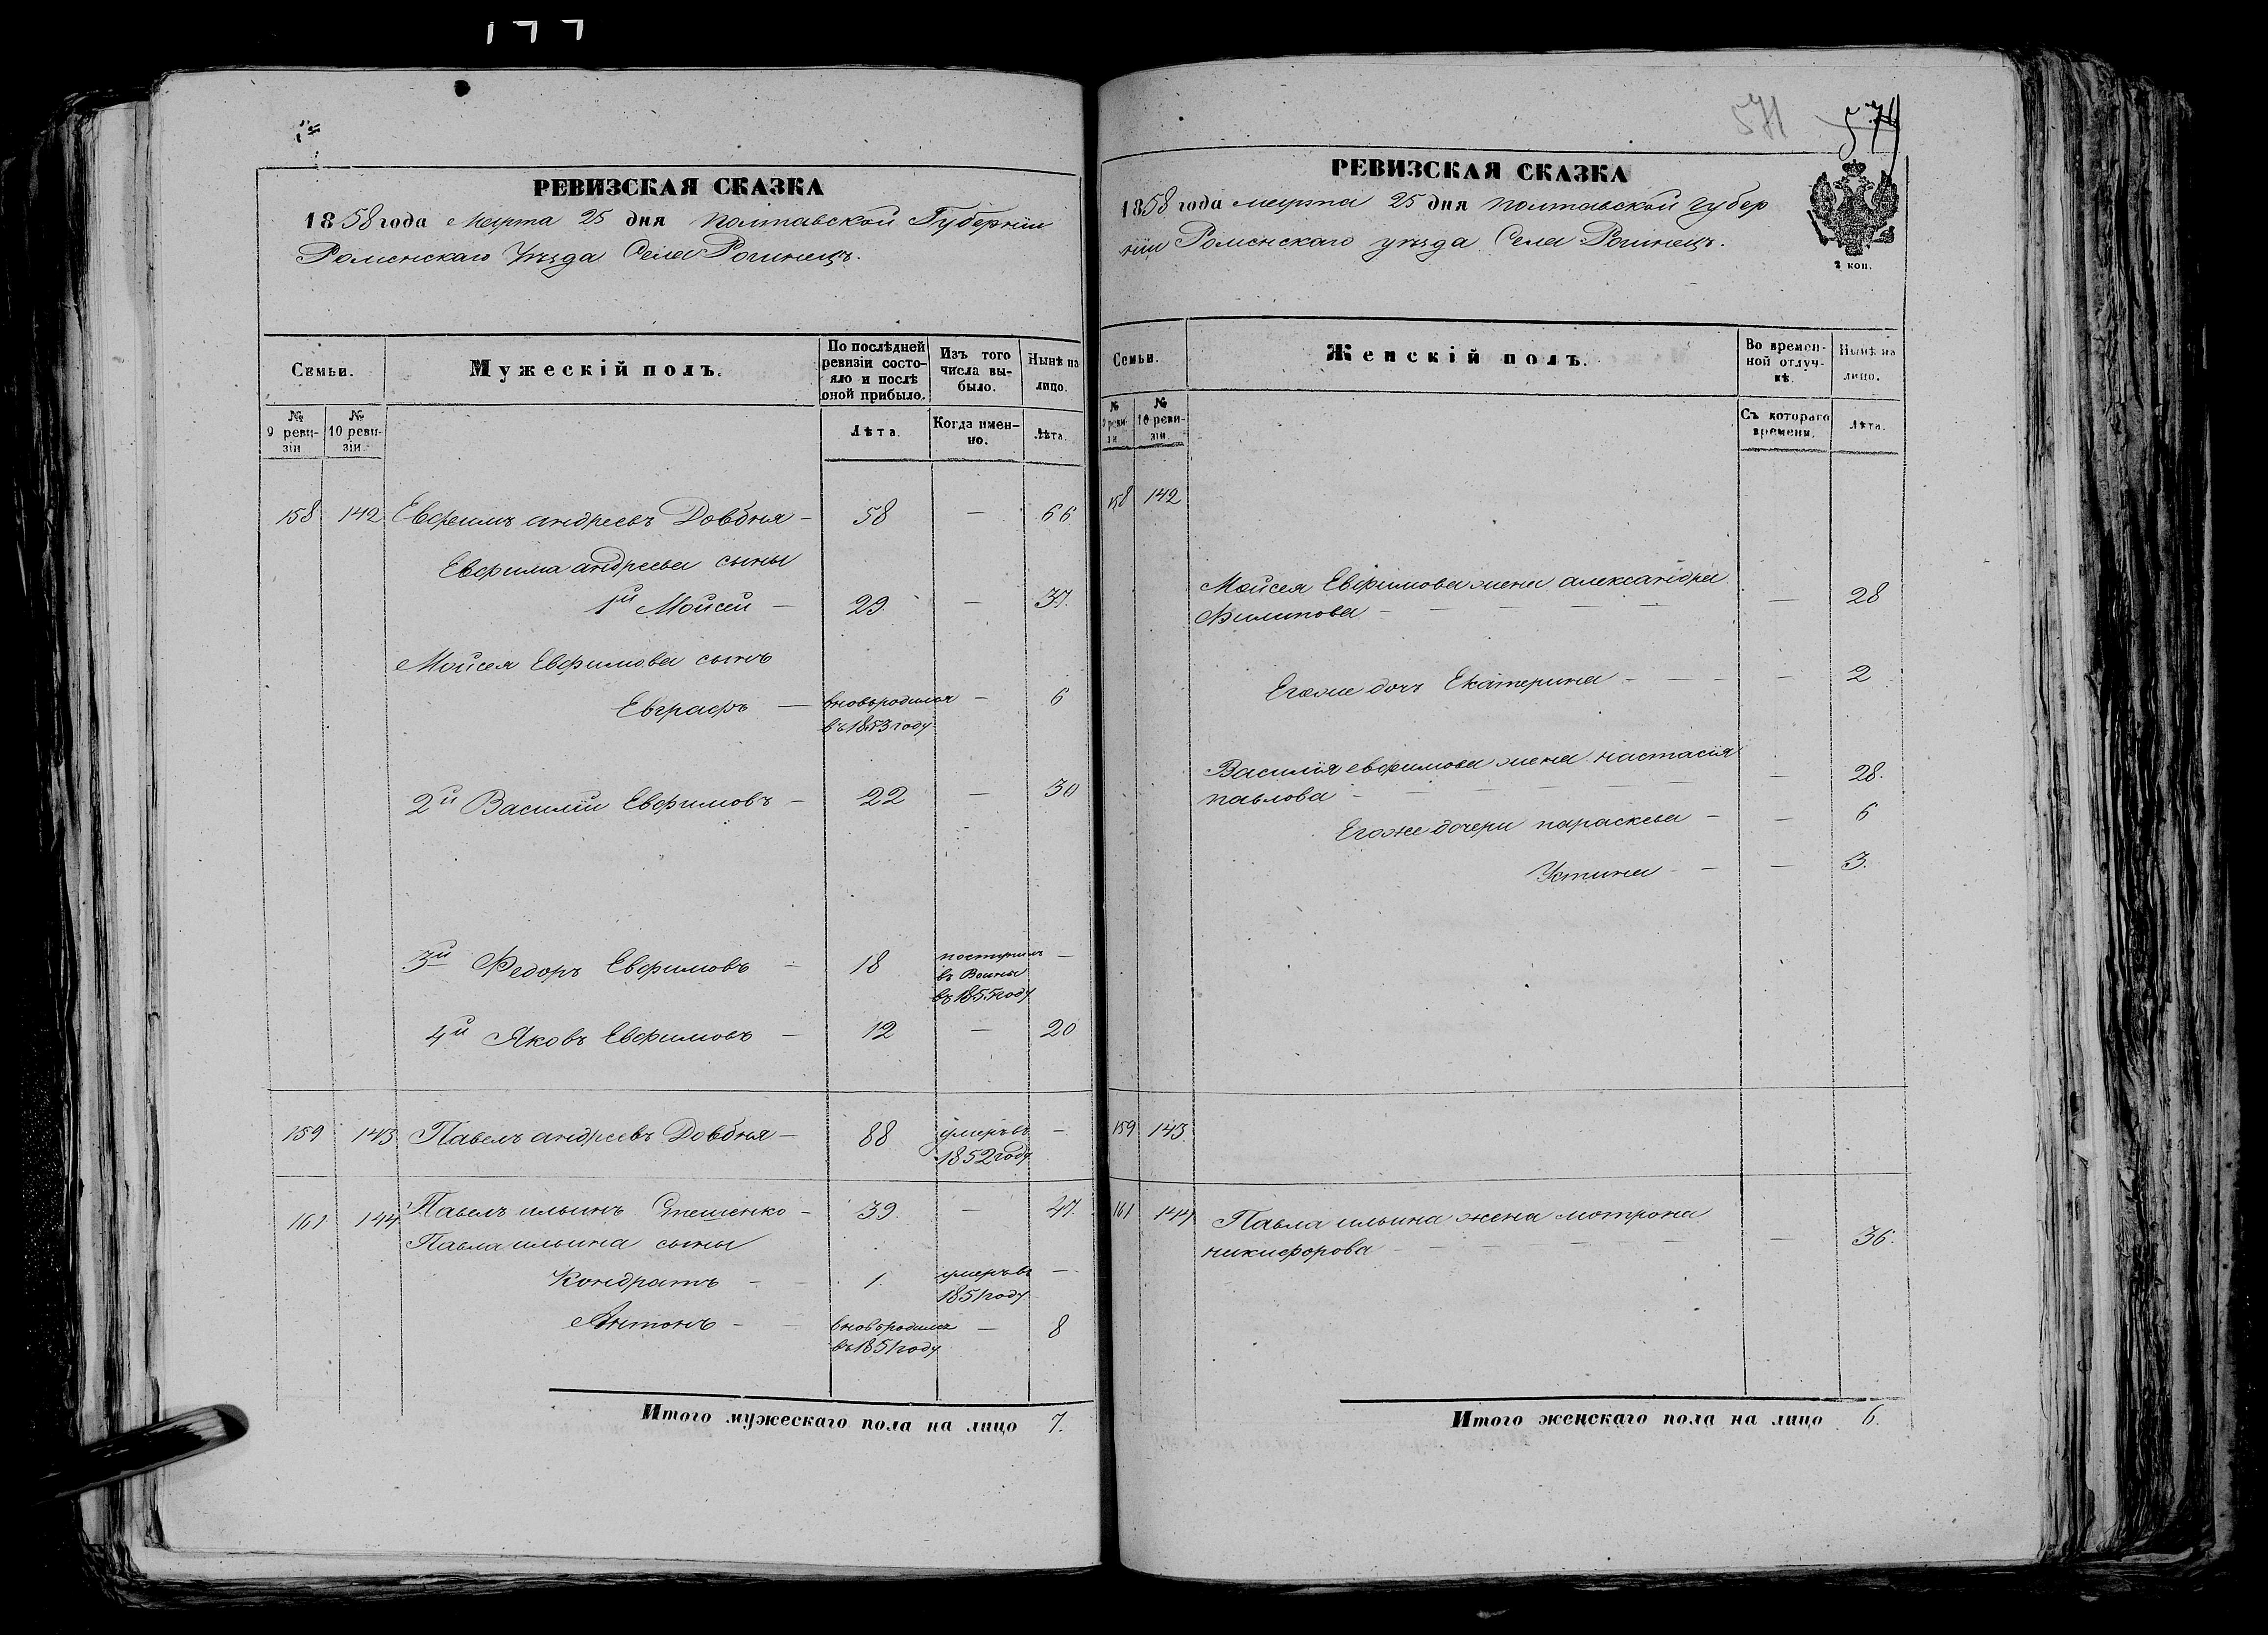 РЕВИЗСКАЯ СКАЗКА
1858 года Марта 25 дня Полтавской Губерніи
Роменскаго Уѣзда Села Рогинецъ.
Семьи.
Мужескій полъ.
По послѣдней ревизіи состояло и послѣ оной прибыло.
Изъ того числа выбыло.
Нынѣ на лицо.
№ 9 ревизіи
№ 10 ревизіи.
Лѣта.
Когда именно.
Лѣта.
158 142 Евфимъ андреевъ Довбня - 58 — 66
Евфима андреева сыны
1й Мойсей — 29. — 37.
Мойсея Евфимова сынъ
Евграфъ — вновьродился — 6
въ 1853 году
2й Василій Евфимовъ - 22 — 30
3й Федоръ Евфимовъ - 18 поступилъ —
въ Воины
въ 1855 году
4й Яковъ Евфимовъ — 12 — 20
159 143 Павелъ андреевъ Довбня — 88 умеръ въ —
1852 году
161 144 Павелъ ильинъ - 39. — 47.
Павла ильина сыны
Кондратъ - 1. умеръ въ —
1851 году
Антонъ - вновьродился — 8
въ 1851 году
Итого мужескаго пола на лицо 7.
571
РЕВИЗСКАЯ СКАЗКА
1858 года марта 25 дня полтавской губер
ніи Роменскаго уѣзда Села Рогинецъ.
2 коп.
Семьи.
Женскій полъ.
Во временной отлучкѣ.
Нынѣ на лицо.
№ 9 ревизіи
№ 10 ревизіи.
Съ котораго времени.
Лѣта.
158 142
Мойсея Евфимова жена александра
Филипова - — 28
Егоже дочь Екатерина - — 2
Василія евфимова жена настасія
павлова - — 28.
Егоже дочери параскева - — 6
Устина - — 3.
159 143
161 144 Павла ильина жена мотрона
никифорова - — 36.
Итого женскаго пола на лицо 6.